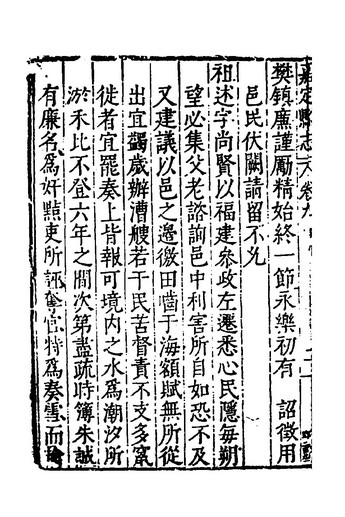 嘉定縣志 卷九
樊鎮廉謹勵精始終一節永樂初有 詔徵用
邑民伏闕請留不允
祖述字尚賢以福建參政左遷悉心民隱每朔
望必集父老諮詢邑中利害所自如恐不及
又建議以邑之邊徼田嚙于海額賦無所從
出宜蠲歲辦漕艘若干民苦督責不支多竄
徙者宜罷奏上皆報可境內之水為潮汐所
淤禾比不登六年之間次第盡疏時簿朱誠
有廉名為奸黠吏所誣奪官特為奏雪而